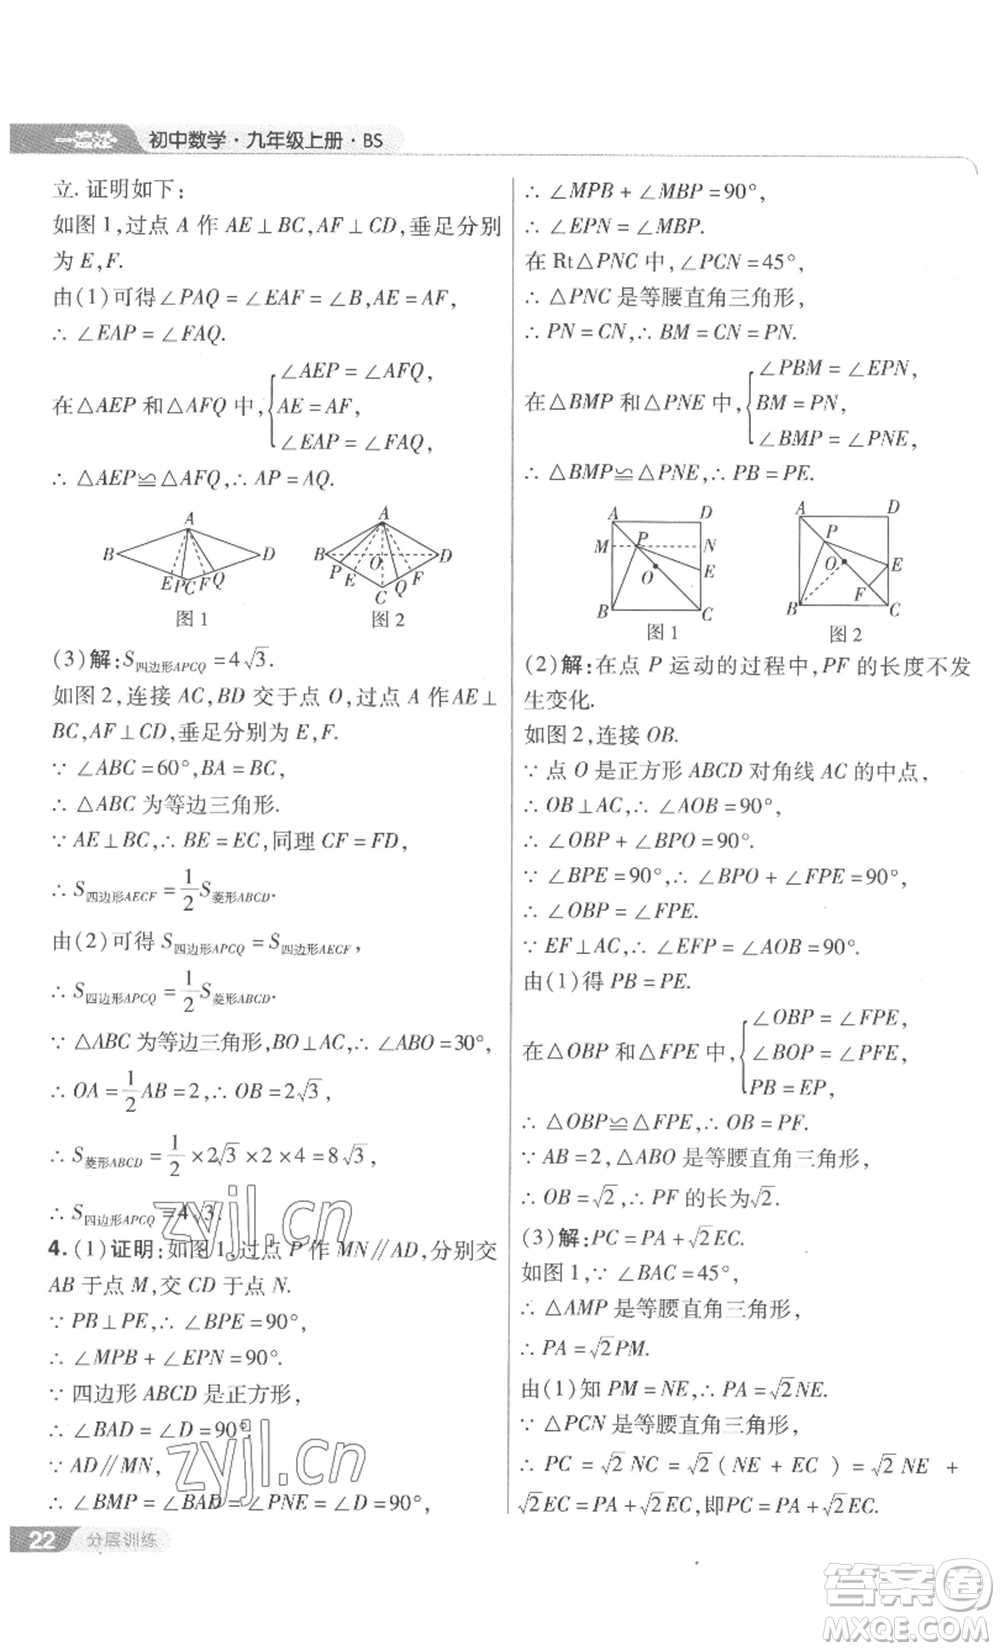 一遍过 初中数学·九年级上册·BS
立.证明如下:
如图1,过点A作AE⊥BC,AF⊥CD,垂足分别
为E,F.
由(1)可得∠PAQ=∠EAF=∠B,AE=AF,
∴∠EAP=∠FAQ.
在△AEP和△AFQ中,{∠AEP=∠AFQ,
AE=AF,
∠EAP=∠FAQ,
∴△AEP≌△AFQ,∴AP=AQ.
A B D E P C F Q
图1
A B O D P E C Q F
图2
(3)解:S四边形APCQ=4√3.
如图2,连接AC,BD交于点O,过点A作AE⊥
BC,AF⊥CD,垂足分别为E,F.
∵∠ABC=60°,BA=BC,
∴△ABC为等边三角形.
∵AE⊥BC,∴BE=EC,同理CF=FD,
∴S四边形AECF=1/2S菱形ABCD.
由(2)可得S四边形APCQ=S四边形AECF,
∴S四边形APCQ=1/2S菱形ABCD.
∵△ABC为等边三角形,BO⊥AC,∴∠ABO=30°,
∴OA=1/2AB=2,∴OB=2√3,
∴S菱形ABCD=1/2×2√3×2×4=8√3,
∴S四边形APCQ=4√3.
4.(1)证明:如图1,过点P作MN∥AD,分别交
AB于点M,交CD于点N.
∵PB⊥PE,∴∠BPE=90°,
∴∠MPB+∠EPN=90°.
∵四边形ABCD是正方形,
∴∠BAD=∠D=90°.
∵AD∥MN,
∴∠BMP=∠BAD=∠PNE=∠D=90°,
∴∠MPB+∠MBP=90°,
∴∠EPN=∠MBP.
在Rt△PNC中,∠PCN=45°,
∴△PNC是等腰直角三角形,
∴PN=CN,∴BM=CN=PN.
在△BMP和△PNE中,{∠PBM=∠EPN,
BM=PN,
∠BMP=∠PNE,
∴△BMP≌△PNE,∴PB=PE.
A D M P N O E B C
图1
A D P O E F B C
图2
(2)解:在点P运动的过程中,PF的长度不发
生变化.
如图2,连接OB.
∵点O是正方形ABCD对角线AC的中点,
∴OB⊥AC,∴∠AOB=90°,
∴∠OBP+∠BPO=90°.
∵∠BPE=90°,∴∠BPO+∠FPE=90°,
∴∠OBP=∠FPE.
∵EF⊥AC,∴∠EFP=∠AOB=90°.
由(1)得PB=PE.
在△OBP和△FPE中,{∠OBP=∠FPE,
∠BOP=∠PFE,
PB=EP,
∴△OBP≌△FPE,∴OB=PF.
∵AB=2,△ABO是等腰直角三角形,
∴OB=√2,∴PF的长为√2.
(3)解:PC=PA+√2EC.
如图1,∵∠BAC=45°,
∴△AMP是等腰直角三角形,
∴PA=√2PM.
由(1)知PM=NE,∴PA=√2NE.
∵△PCN是等腰直角三角形,
∴PC=√2NC=√2(NE+EC)=√2NE+
√2EC=PA+√2EC,即PC=PA+√2EC.
zyjl.cn
zyjl.cn
22 分层训练
答案圈
MXQE.COM